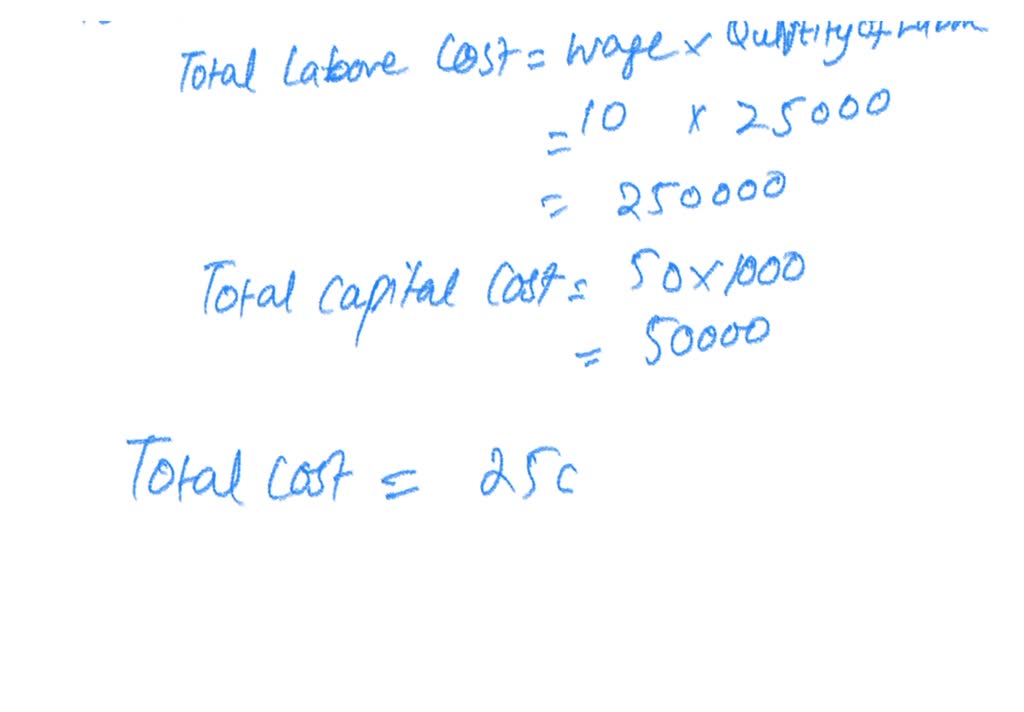 Total Laboure Cost = wage x Quntity of
= 10 x 25000
= 250000
Total capital cost = 50 x 1000
= 50000
Total cost = 250